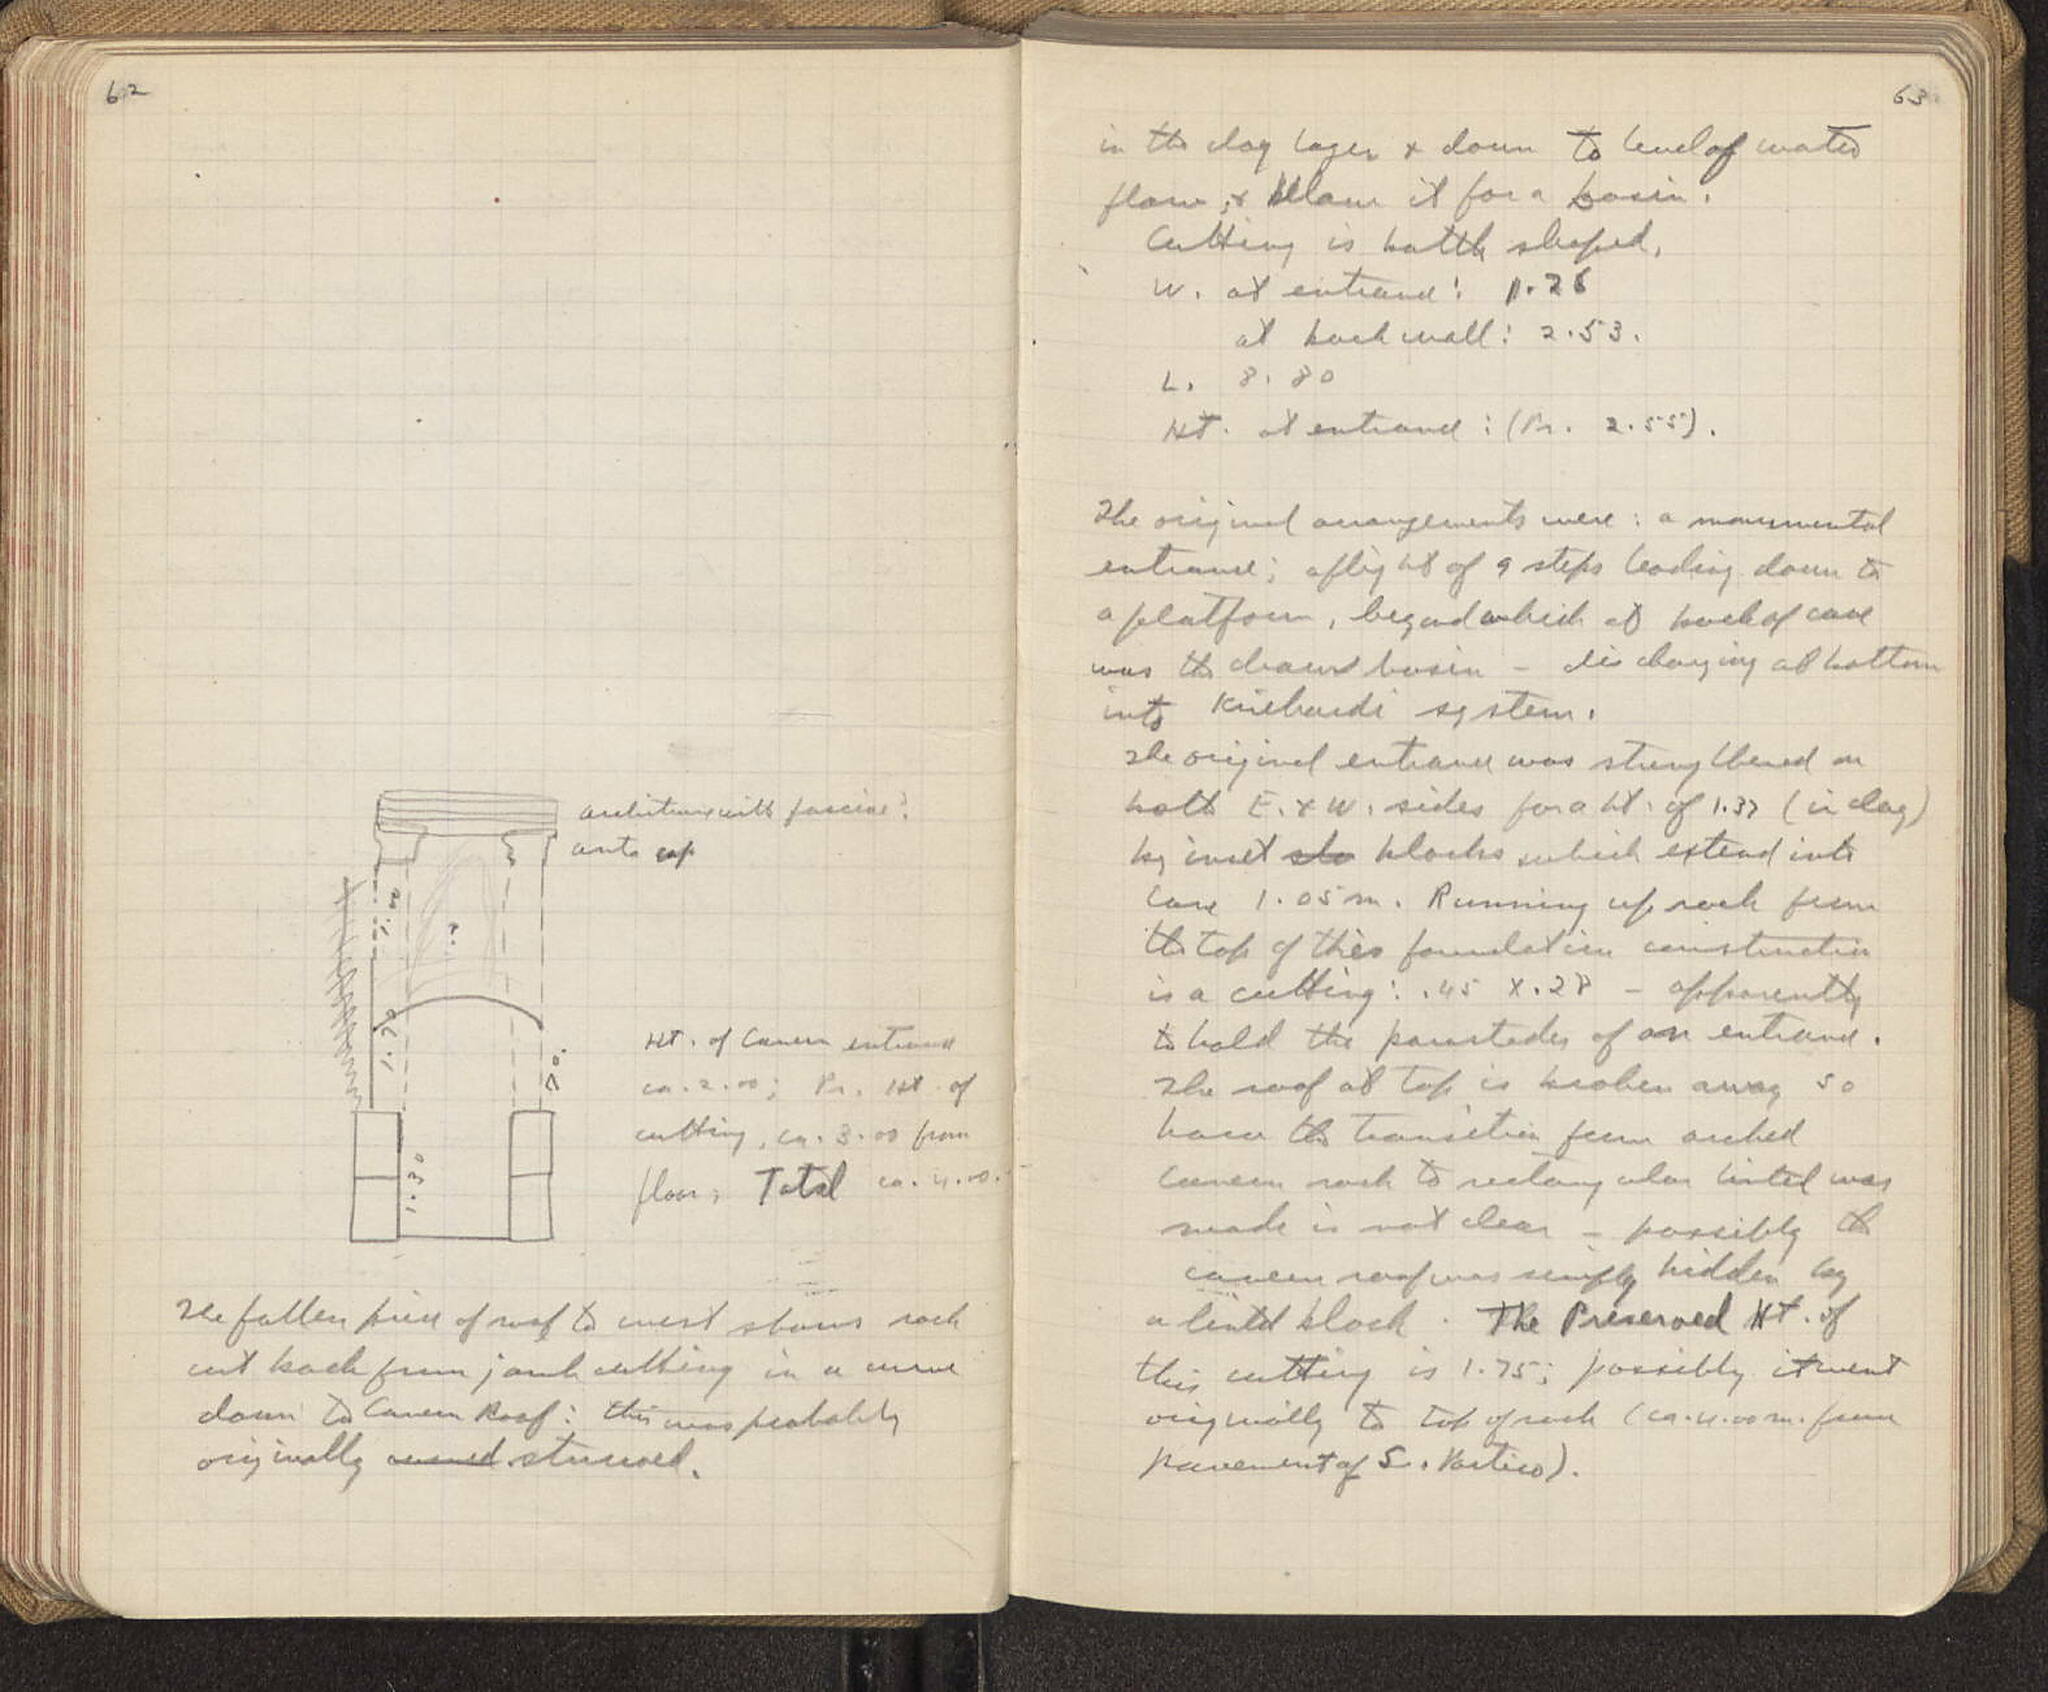 62
architrave with fasciae?
anta cap
1.00
1.70
.70
1.30
Ht. of Cavern entrance
ca. 2.00; Pr. Ht. of
cutting, ca. 3.00 from
floor; Total ca. 4.00.
The fallen piece of roof to west shows rock
cut back from jamb cutting in a curve
down to Cavern Roof: this was probably
originally stuccoed.
63
in the clay layer & down to level of water
flow, & it for a basin.
Cutting is bottle shaped.
W. at entrance: 1.26
at back wall: 2.53.
L. 8.80
Ht. at entrance: (Pr. 2.55).
The original arrangements were: a monumental
entrance; a flight of 9 steps leading down to
a platform, beyond which at back of cave
was the draw basin – discharging at bottom
into system.
The original entrance was strengthened on
both E. & W. sides for a ht. of 1.37 (in clay)
by inset blocks which extend into
cave 1.05 m. Running up rock from
the top of this foundation construction
is a cutting: .45 x .28 – apparently
to hold the parastades of an entrance.
The roof at top is broken away so
how the transition from arched
cavern rock to rectangular lintel was
made is not clear – possibly the
cavern roof was simply hidden by
a lintel block. The Preserved Ht. of
this cutting is 1.75; possibly it went
originally to top of rock (ca. 4.00 m. from
pavement of S. Portico).